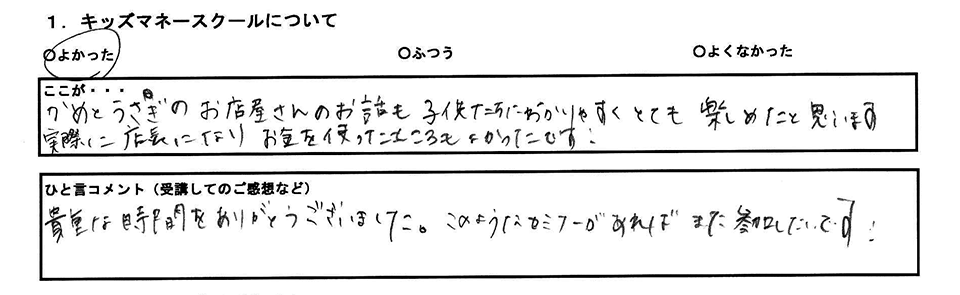 1. キッズマネースクールについて
○よかった ○ふつう ○よくなかった
ここが・・・
かめとうさぎのお店屋さんのお話も子供たちにわかりやすくとても楽しめたと思います
実際に店長になりお金を使ったところもよかったです!
ひと言コメント(受講してのご感想など)
貴重な時間をありがとうございました。このようなセミナーがあればまた参加したいです!